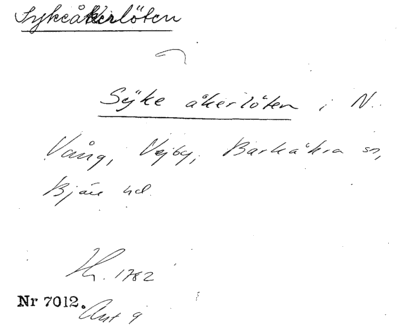 Sykeåkerlöten
Syke åkerlöten i N.
Vång, Vejby, Barkåkra sn,
Bjäre hd
Hr. 1782
Nr 7012.
Akt 9